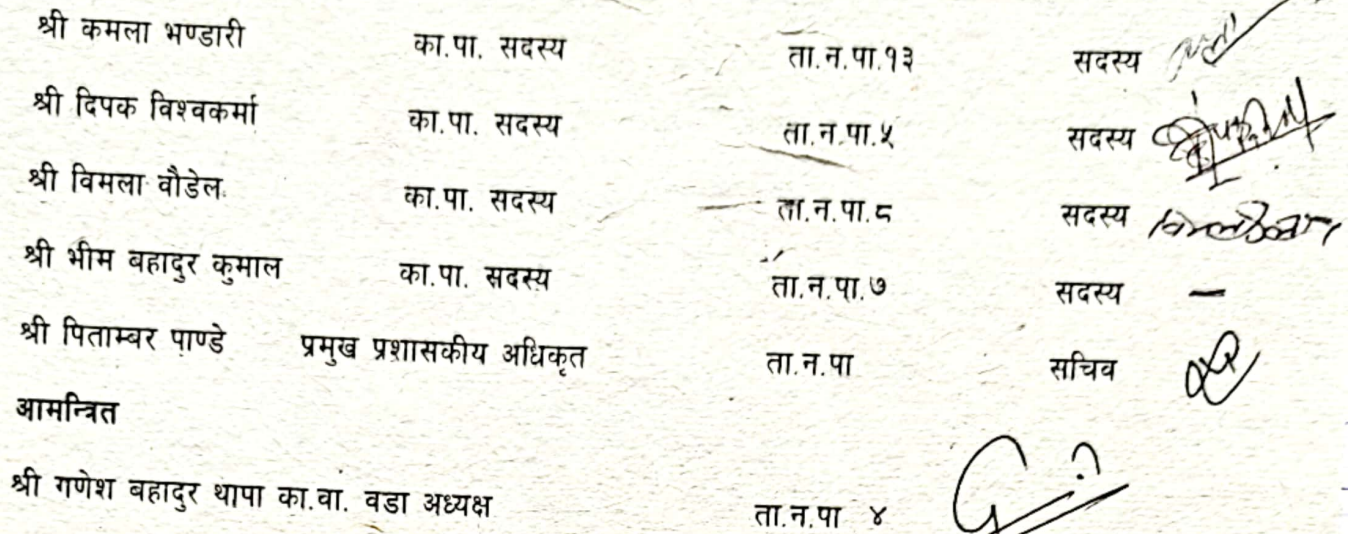 श्री कमला भण्डारी का.पा. सदस्य ता.न.पा.१३ सदस्य
श्री दिपक विश्वकर्मा का.पा. सदस्य ता.न.पा.५ सदस्य
श्री विमला वौडेल का.पा. सदस्य ता.न.पा.८ सदस्य
श्री भीम बहादुर कुमाल का.पा. सदस्य ता.न.पा.७ सदस्य –
श्री पिताम्बर पाण्डे प्रमुख प्रशासकीय अधिकृत ता.न.पा सचिव
आमन्त्रित
श्री गणेश बहादुर थापा का.वा. वडा अध्यक्ष ता.न.पा ४